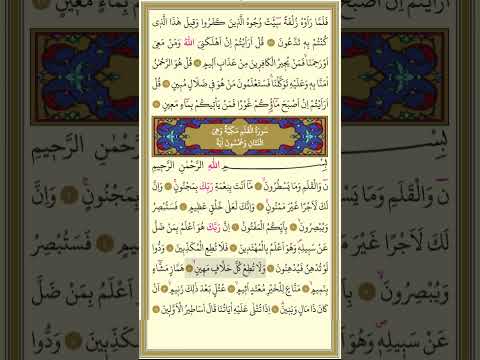 فَلَمَّا رَاَوْهُ زُلْفَةً سٖٓيـَٔتْ وُجُوهُ الَّذٖينَ كَفَرُوا وَقٖيلَ هٰذَا الَّذٖى
كُنْتُمْ بِهٖ تَدَّعُونَ قُلْ اَرَاَيْتُمْ اِنْ اَهْلَكَنِىَ اللّٰهُ وَمَنْ مَعِىَ
اَوْ رَحِمَنَا فَمَنْ يُجٖيرُ الْكَافِرٖينَ مِنْ عَذَابٍ اَلٖيمٍ قُلْ هُوَ الرَّحْمٰنُ
اٰمَنَّا بِهٖ وَعَلَيْهِ تَوَكَّلْنَا فَسَتَعْلَمُونَ مَنْ هُوَ فٖى ضَلَالٍ مُبٖينٍ قُلْ
اَرَاَيْتُمْ اِنْ اَصْبَحَ مَٓاؤُ۬كُمْ غَوْرًا فَمَنْ يَاْتٖيكُمْ بِمَٓاءٍ مَعٖينٍ
سُورَةُ الْقَلَمِ مَكِّيَّةٌ وَهِىَ
اِثْنَتَانِ وَخَمْسُونَ اٰيَةً
بِسْمِ اللّٰهِ الرَّحْمٰنِ الرَّحٖيمِ
نٓ وَالْقَلَمِ وَمَا يَسْطُرُونَ مَٓا اَنْتَ بِنِعْمَةِ رَبِّكَ بِمَجْنُونٍ وَاِنَّ
لَكَ لَاَجْرًا غَيْرَ مَمْنُونٍ وَاِنَّكَ لَعَلٰى خُلُقٍ عَظٖيمٍ فَسَتُبْصِرُ
وَيُبْصِرُونَ بِاَيِّكُمُ الْمَفْتُونُ اِنَّ رَبَّكَ هُوَ اَعْلَمُ بِمَنْ ضَلَّ
عَنْ سَبٖيلِهٖ وَهُوَ اَعْلَمُ بِالْمُهْتَدٖينَ فَلَا تُطِعِ الْمُكَذِّبٖينَ وَدُّوا
لَوْ تُدْهِنُ فَيُدْهِنُونَ وَلَا تُطِعْ كُلَّ حَلَّافٍ مَهٖينٍ هَمَّازٍ مَشَّٓاءٍ
بِنَمٖيمٍ مَنَّاعٍ لِلْخَيْرِ مُعْتَدٍ اَثٖيمٍ عُتُلٍّ بَعْدَ ذٰلِكَ زَنٖيمٍ اَنْ
كَانَ ذَا مَالٍ وَبَنٖينَ اِذَا تُتْلٰى عَلَيْهِ اٰيَاتُنَا قَالَ اَسَاطٖيرُ الْاَوَّلٖينَ